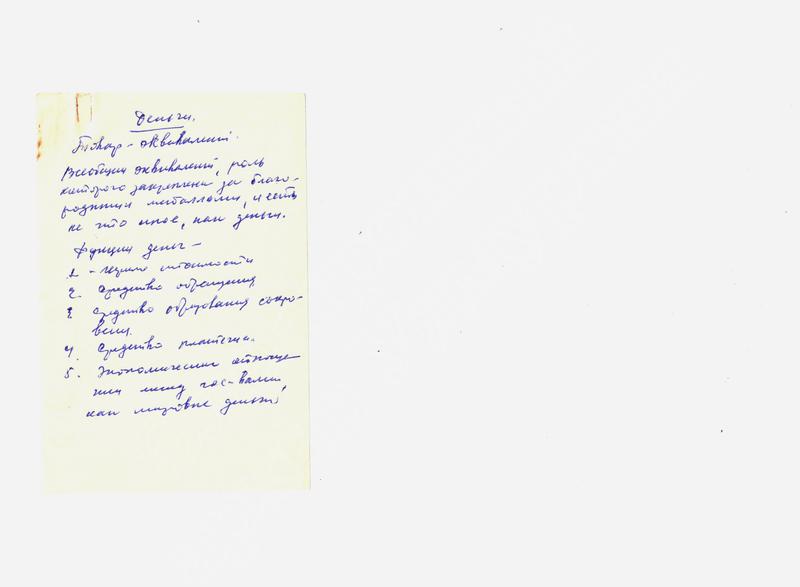 Деньги.
Товар - эквивалент.
Всеобщий эквивалент, роль
которого закреплена за благо-
родными металлами, и есть
не что иное, как деньги.
Функции денег -
1 - мера стоимости
2. Средство обращения
3 Средство образования сокро-
вищ.
4. Средство платежа.
5. Экономические отноше
ния между гос-вами,
как мировые деньги